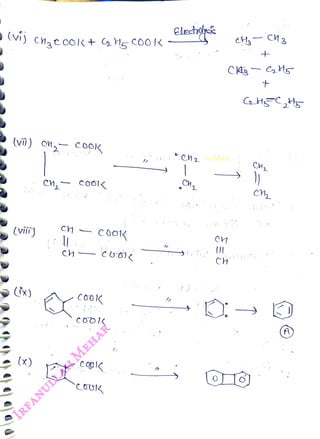 (vi) CH3COOK + C2H5COOK Electrolysis CH3 - CH3
+
CH3 - C2H5
+
C2H5-C2H5
(vii) CH2 - COOK
CH2 - COOK
" •CH2
•CH2
CH2
||
CH2
(viii) CH - COOK
||
CH - COOK
" CH
|||
CH
(ix) COOK
COOK
"
A
(x) COOK
COOK
"
IRFANULLAH MEHAR